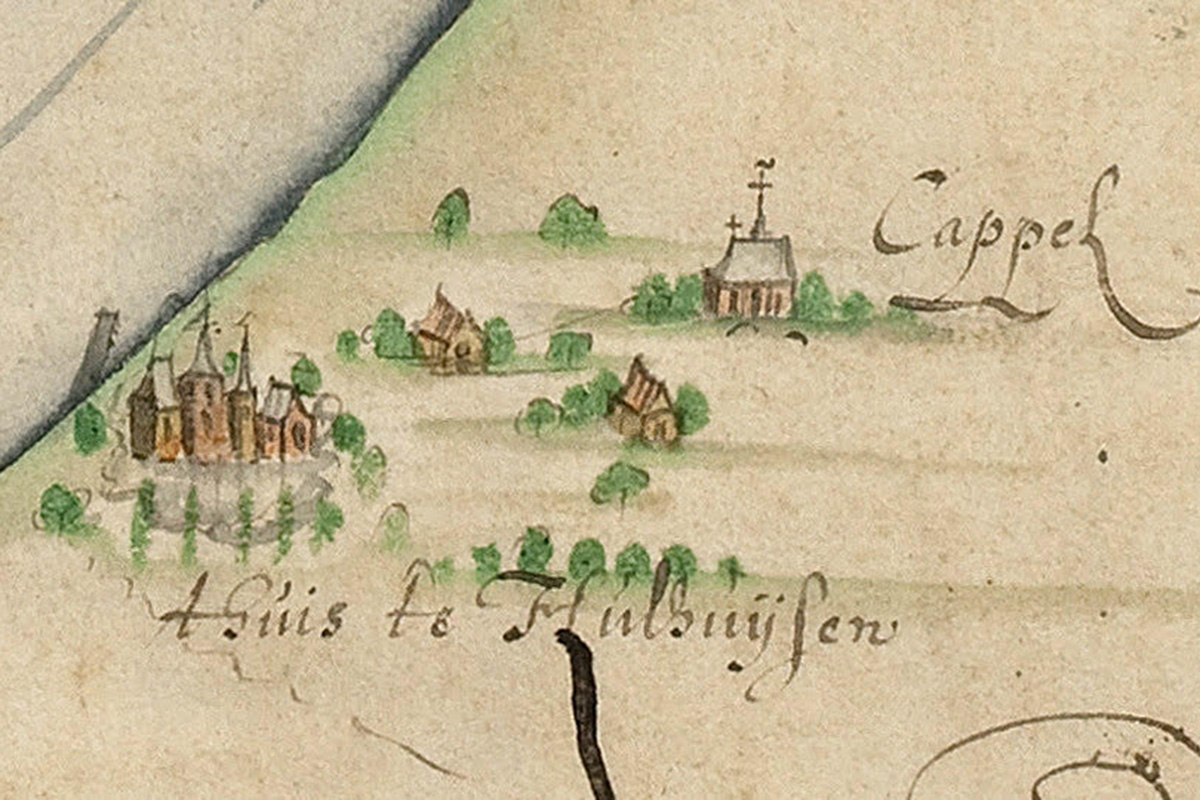 Cappel
thuis te Hulhuijsen